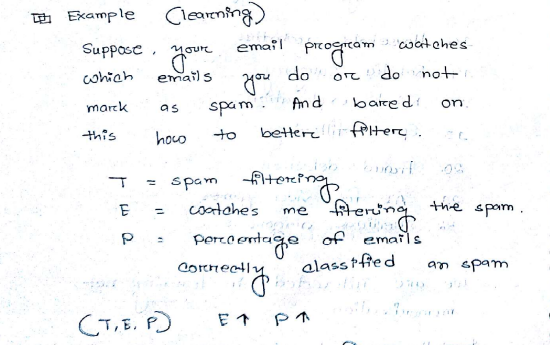 Example (learning)
Suppose, your email program watches
which emails you do or do not
mark as spam. And bared on
this how to better filter.
T = spam filtering
E = watches me filtering the spam.
P = percentage of emails
correctly classified an spam
(T, E, P) E ↑ P ↑